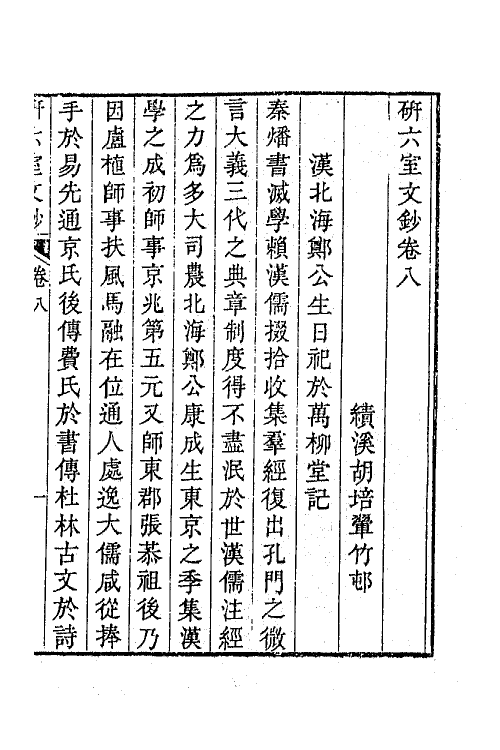 研六室文鈔卷八
績溪胡培翬竹邨
漢北海鄭公生日祀於萬柳堂記
秦燔書滅學賴漢儒掇拾收集羣經復出孔門之微
言大義三代之典章制度得不盡泯於世漢儒注經
之力爲多大司農北海鄭公康成生東京之季集漢
學之成初師事京兆第五元又師東郡張恭祖後乃
因盧植師事扶風馬融在位通人處逸大儒咸從捧
手於易先通京氏後傳費氏於書傳杜林古文於詩
研六室文鈔 卷八 一